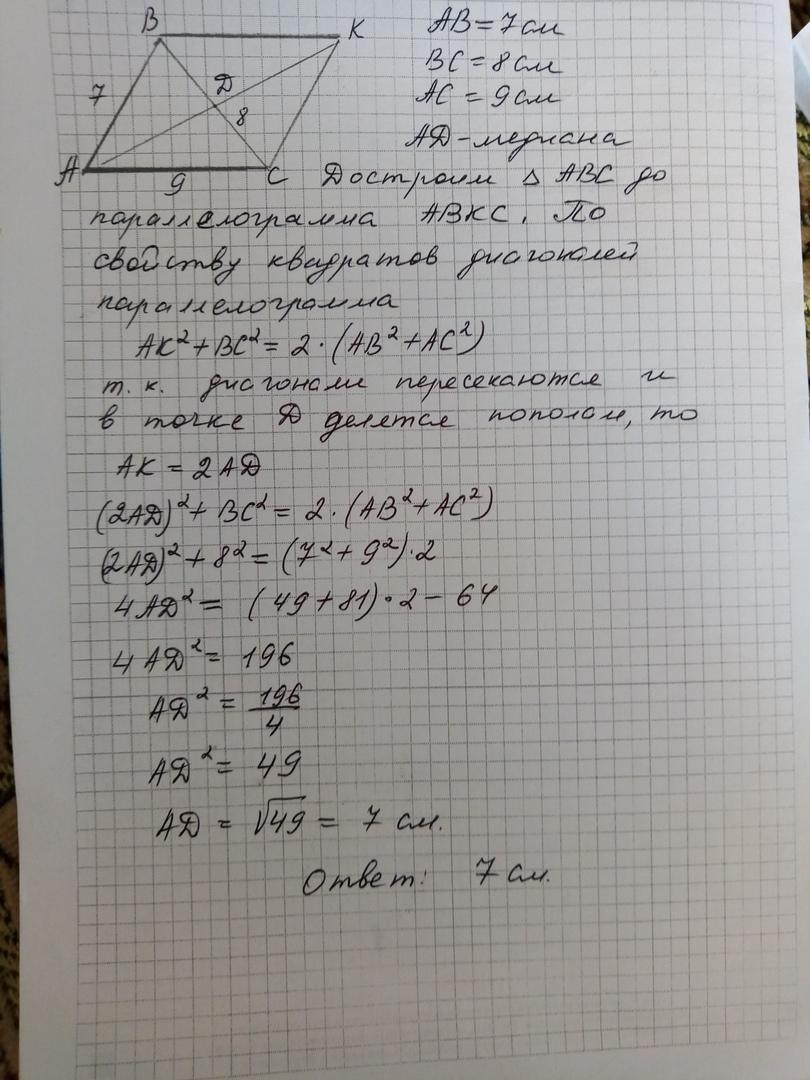 B
K
7
D
8
A
9
C
AB = 7 см
BC = 8 см
AC = 9 см
АД - медиана
Достроим △ ABC до
параллелограмма ABKC. По
свойству квадратов диагоналей
параллелограмма
AK² + BC² = 2 · (AB² + AC²)
т. к. диагонали пересекаются и
в точке Д делятся пополам, то
AK = 2АД
(2АД)² + BC² = 2 · (AB² + AC²)
(2АД)² + 8² = (7² + 9²) · 2
4АД² = (49 + 81) · 2 - 64
4АД² = 196
АД² = 196/4
АД² = 49
АД = √49 = 7 см.
Ответ: 7 см.